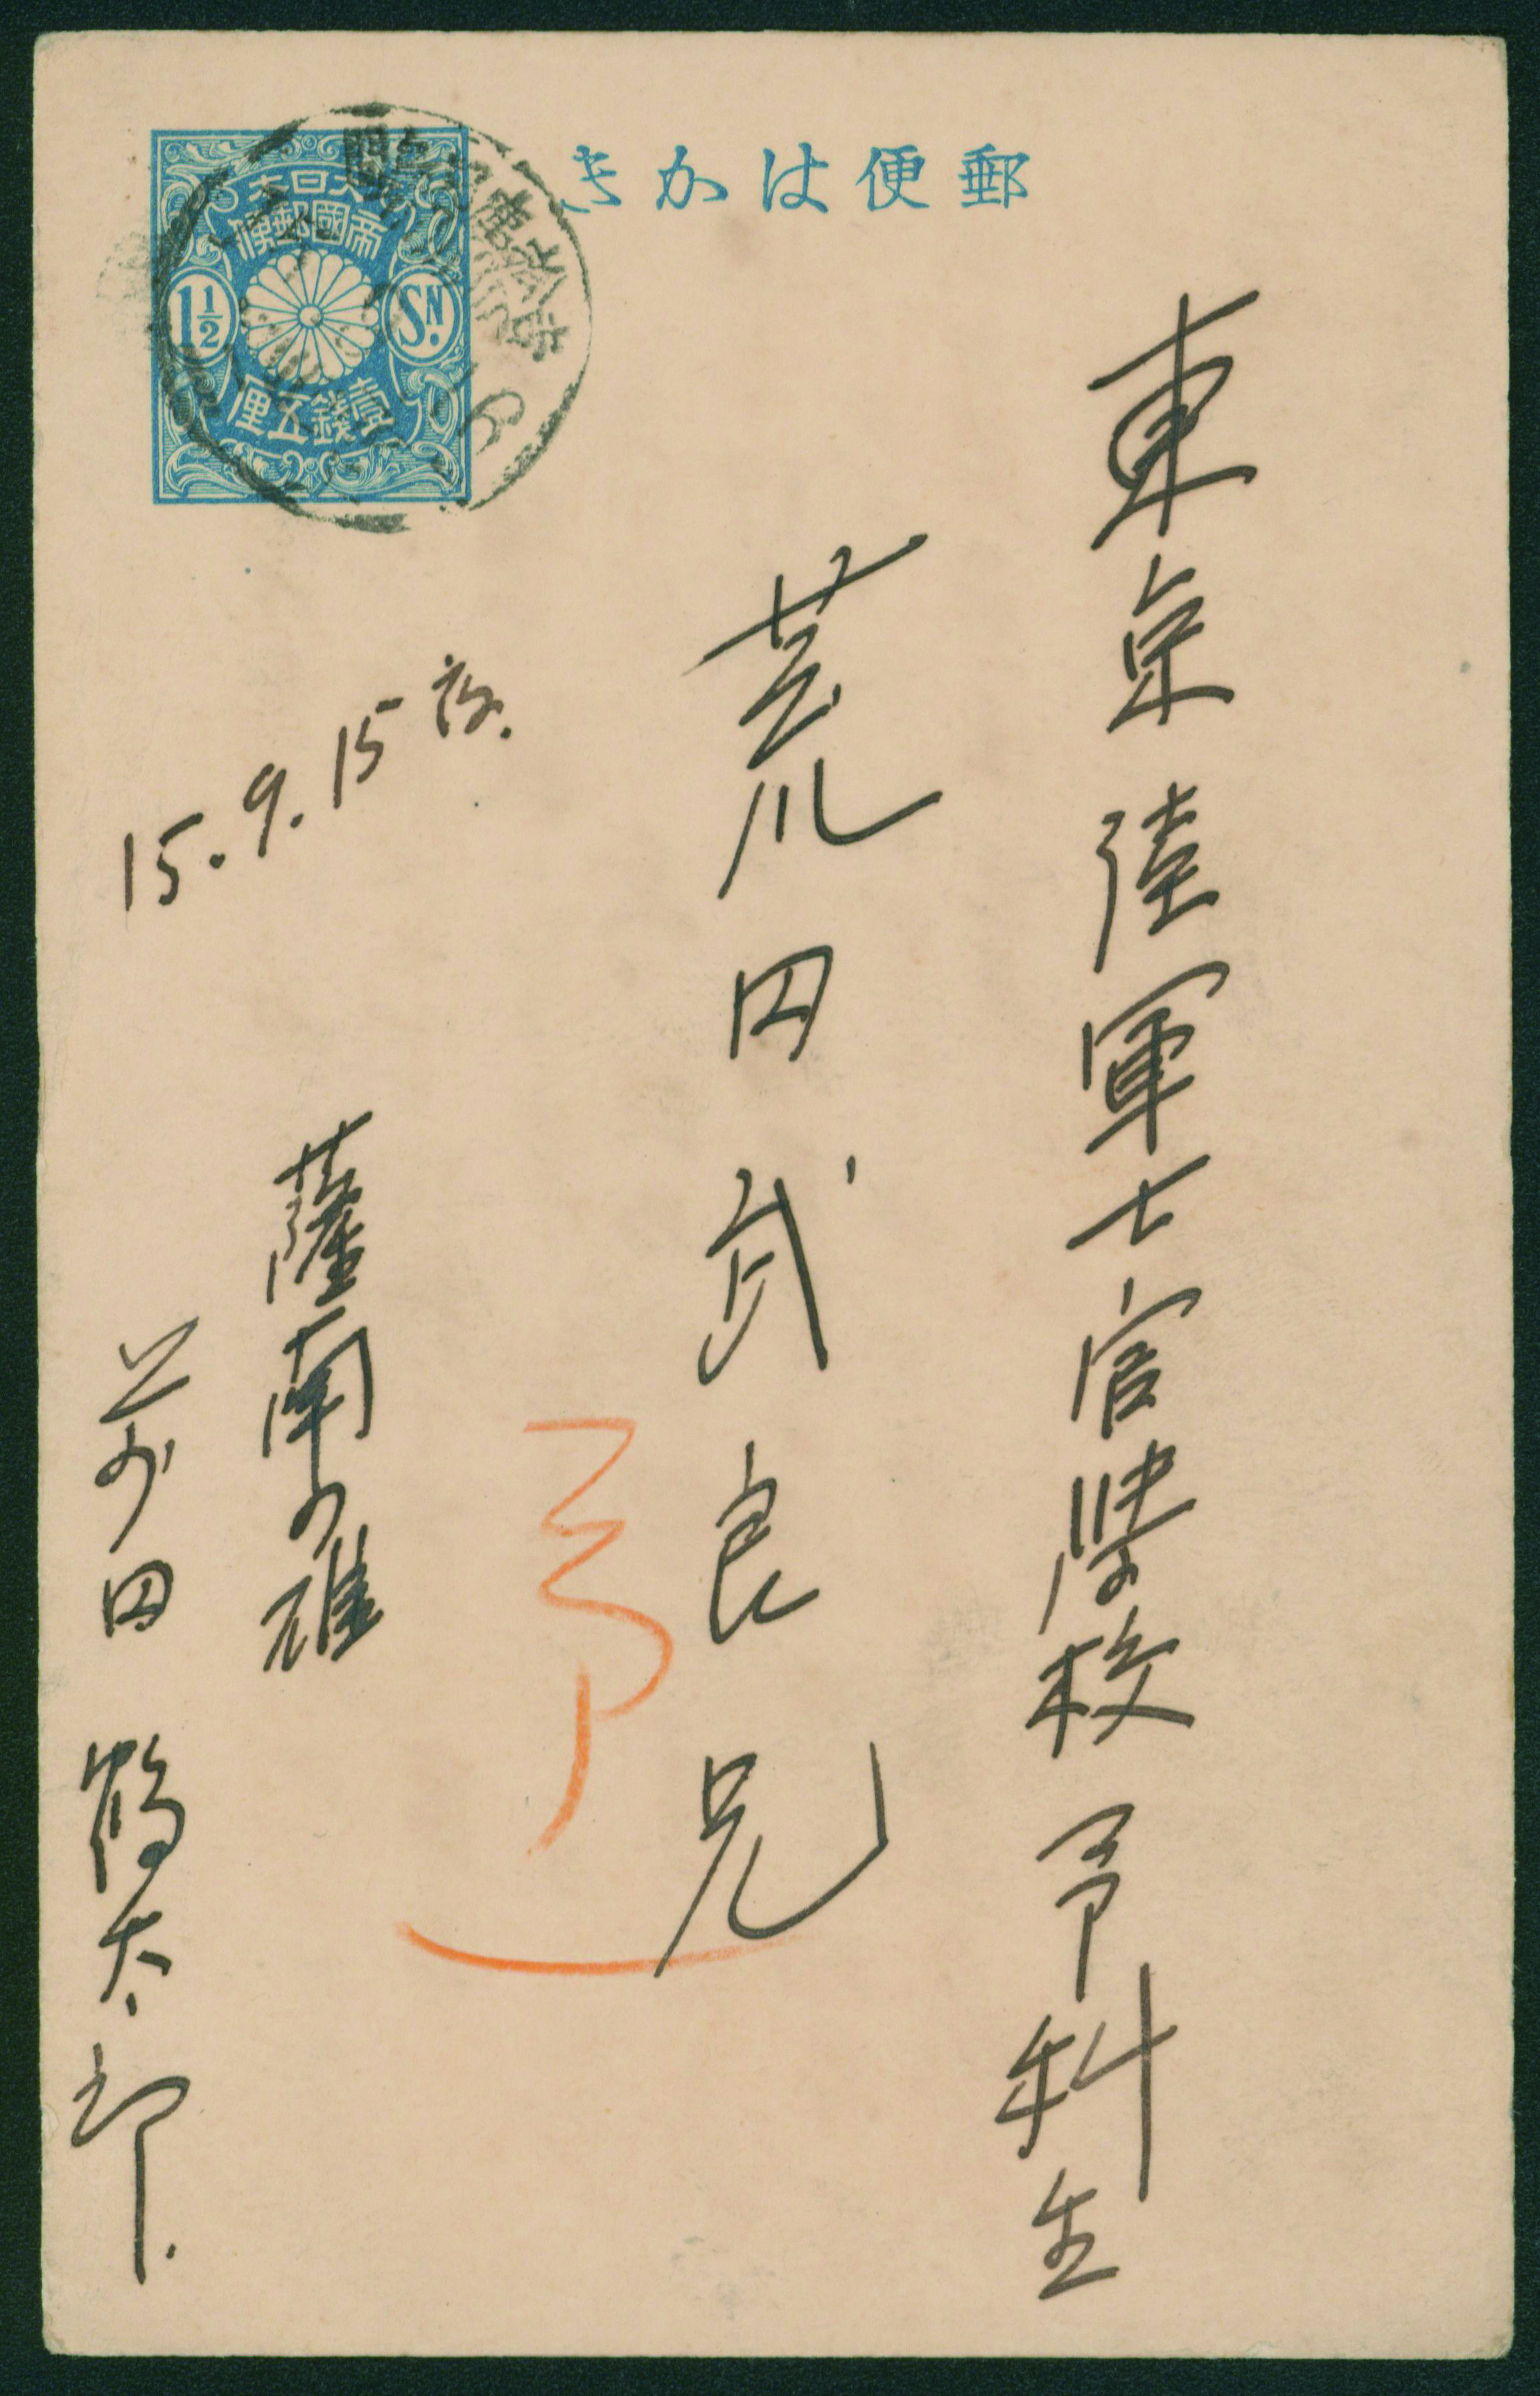 郵便はかき
大日本
帝國郵便
1½ SN.
壹錢五厘
東京陸軍士官学校予科生
荒田武良兄
予
15.9.15夜.
薩南の雄
前田鶴太郎.